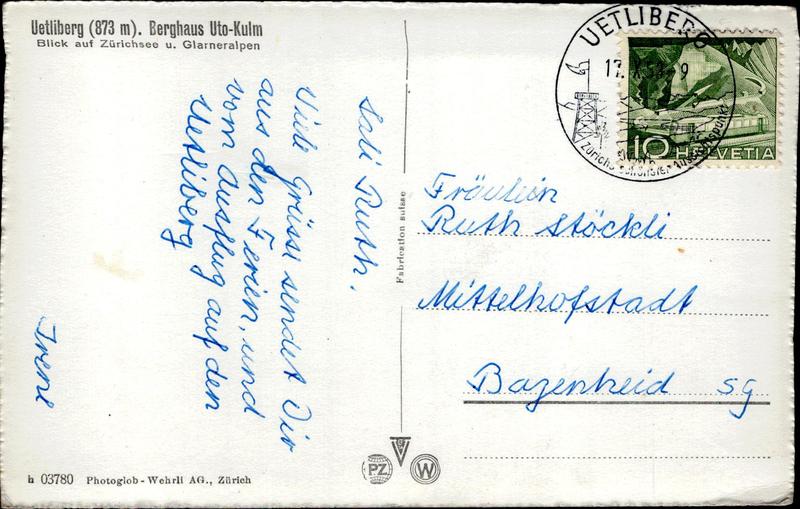 Uetliberg (873 m). Berghaus Uto-Kulm
Blick auf Zürichsee u. Glarneralpen
Sali Ruth.
Viele Grüsse sendet Dir
aus den Ferien, und
vom Ausflug auf den
Uetliberg
Irene
Fabrication suisse
UETLIBERG
Zürichs schönster Aussichtspunkt
10 HELVETIA
Fräulein
Ruth Stöckli
Mittelhofstadt
Bazenheid SG
h 03780 Photoglob-Wehrli AG., Zürich
PZ W